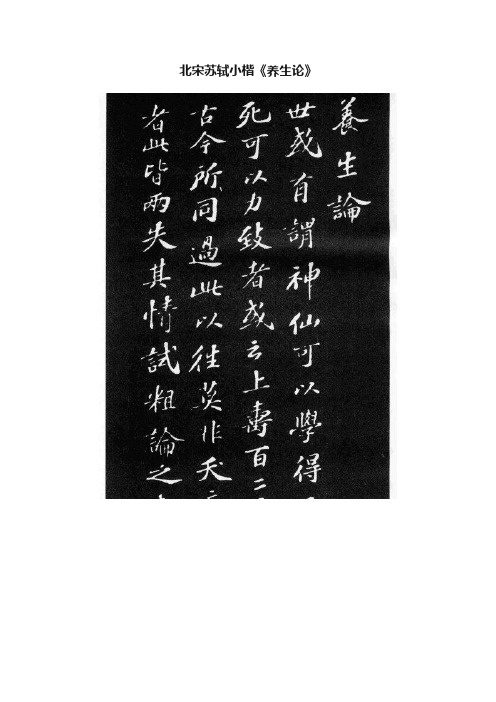 北宋苏轼小楷《养生论》
養生論
世或有謂神仙可以學得
死可以力致者或云上壽百二
古今所同過此以往莫非夭
者此皆兩失其情試粗論之